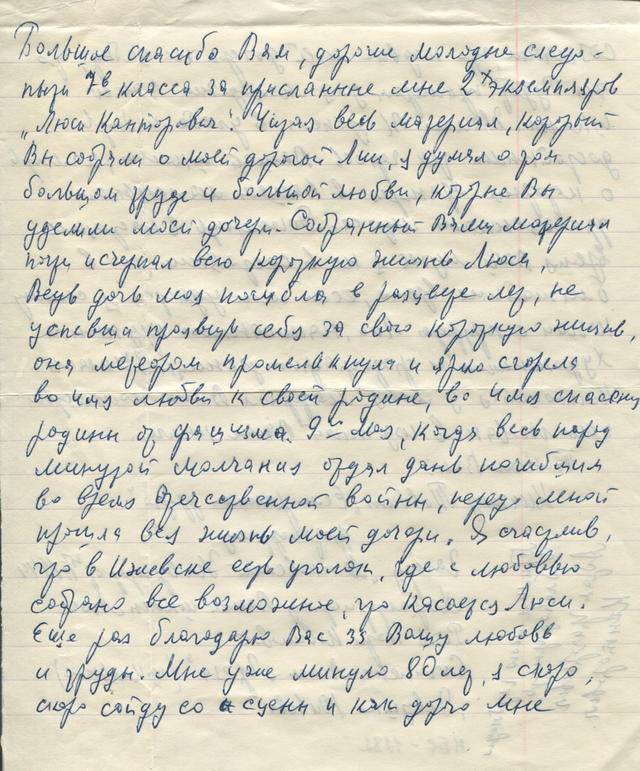 Большое спасибо Вам, дорогие молодые следо-
пыты 7в класса за присланные мне 2х экземпляров
„Люси Канторович“. Читая весь материал, который
Вы собрали о моей дорогой Люси, я думал о том
большом труде и большой любви, которые Вы
уделили моей дочери. Собранный Вами материал
почти исчерпал всю короткую жизнь Люси,
Ведь дочь моя погибла в расцвете лет, не
успевши проявить себя за свою короткую жизнь,
она метеором промелькнула и ярко сгорела
во имя любви к своей родине, во имя спасения
родины от фашизма. 9го мая, когда весь народ
минутой молчания отдал дань погибшим
во время Отечественной войны, передо мной
прошла вся жизнь моей дочери. Я счастлив,
что в Ижевске есть уголок, где с любовью
собрано все возможное, что касается Люси.
Еще раз благодарю Вас за Вашу любовь
и труды. Мне уже минуло 80 лет, я скоро,
скоро сойду со сцены и как дорого мне